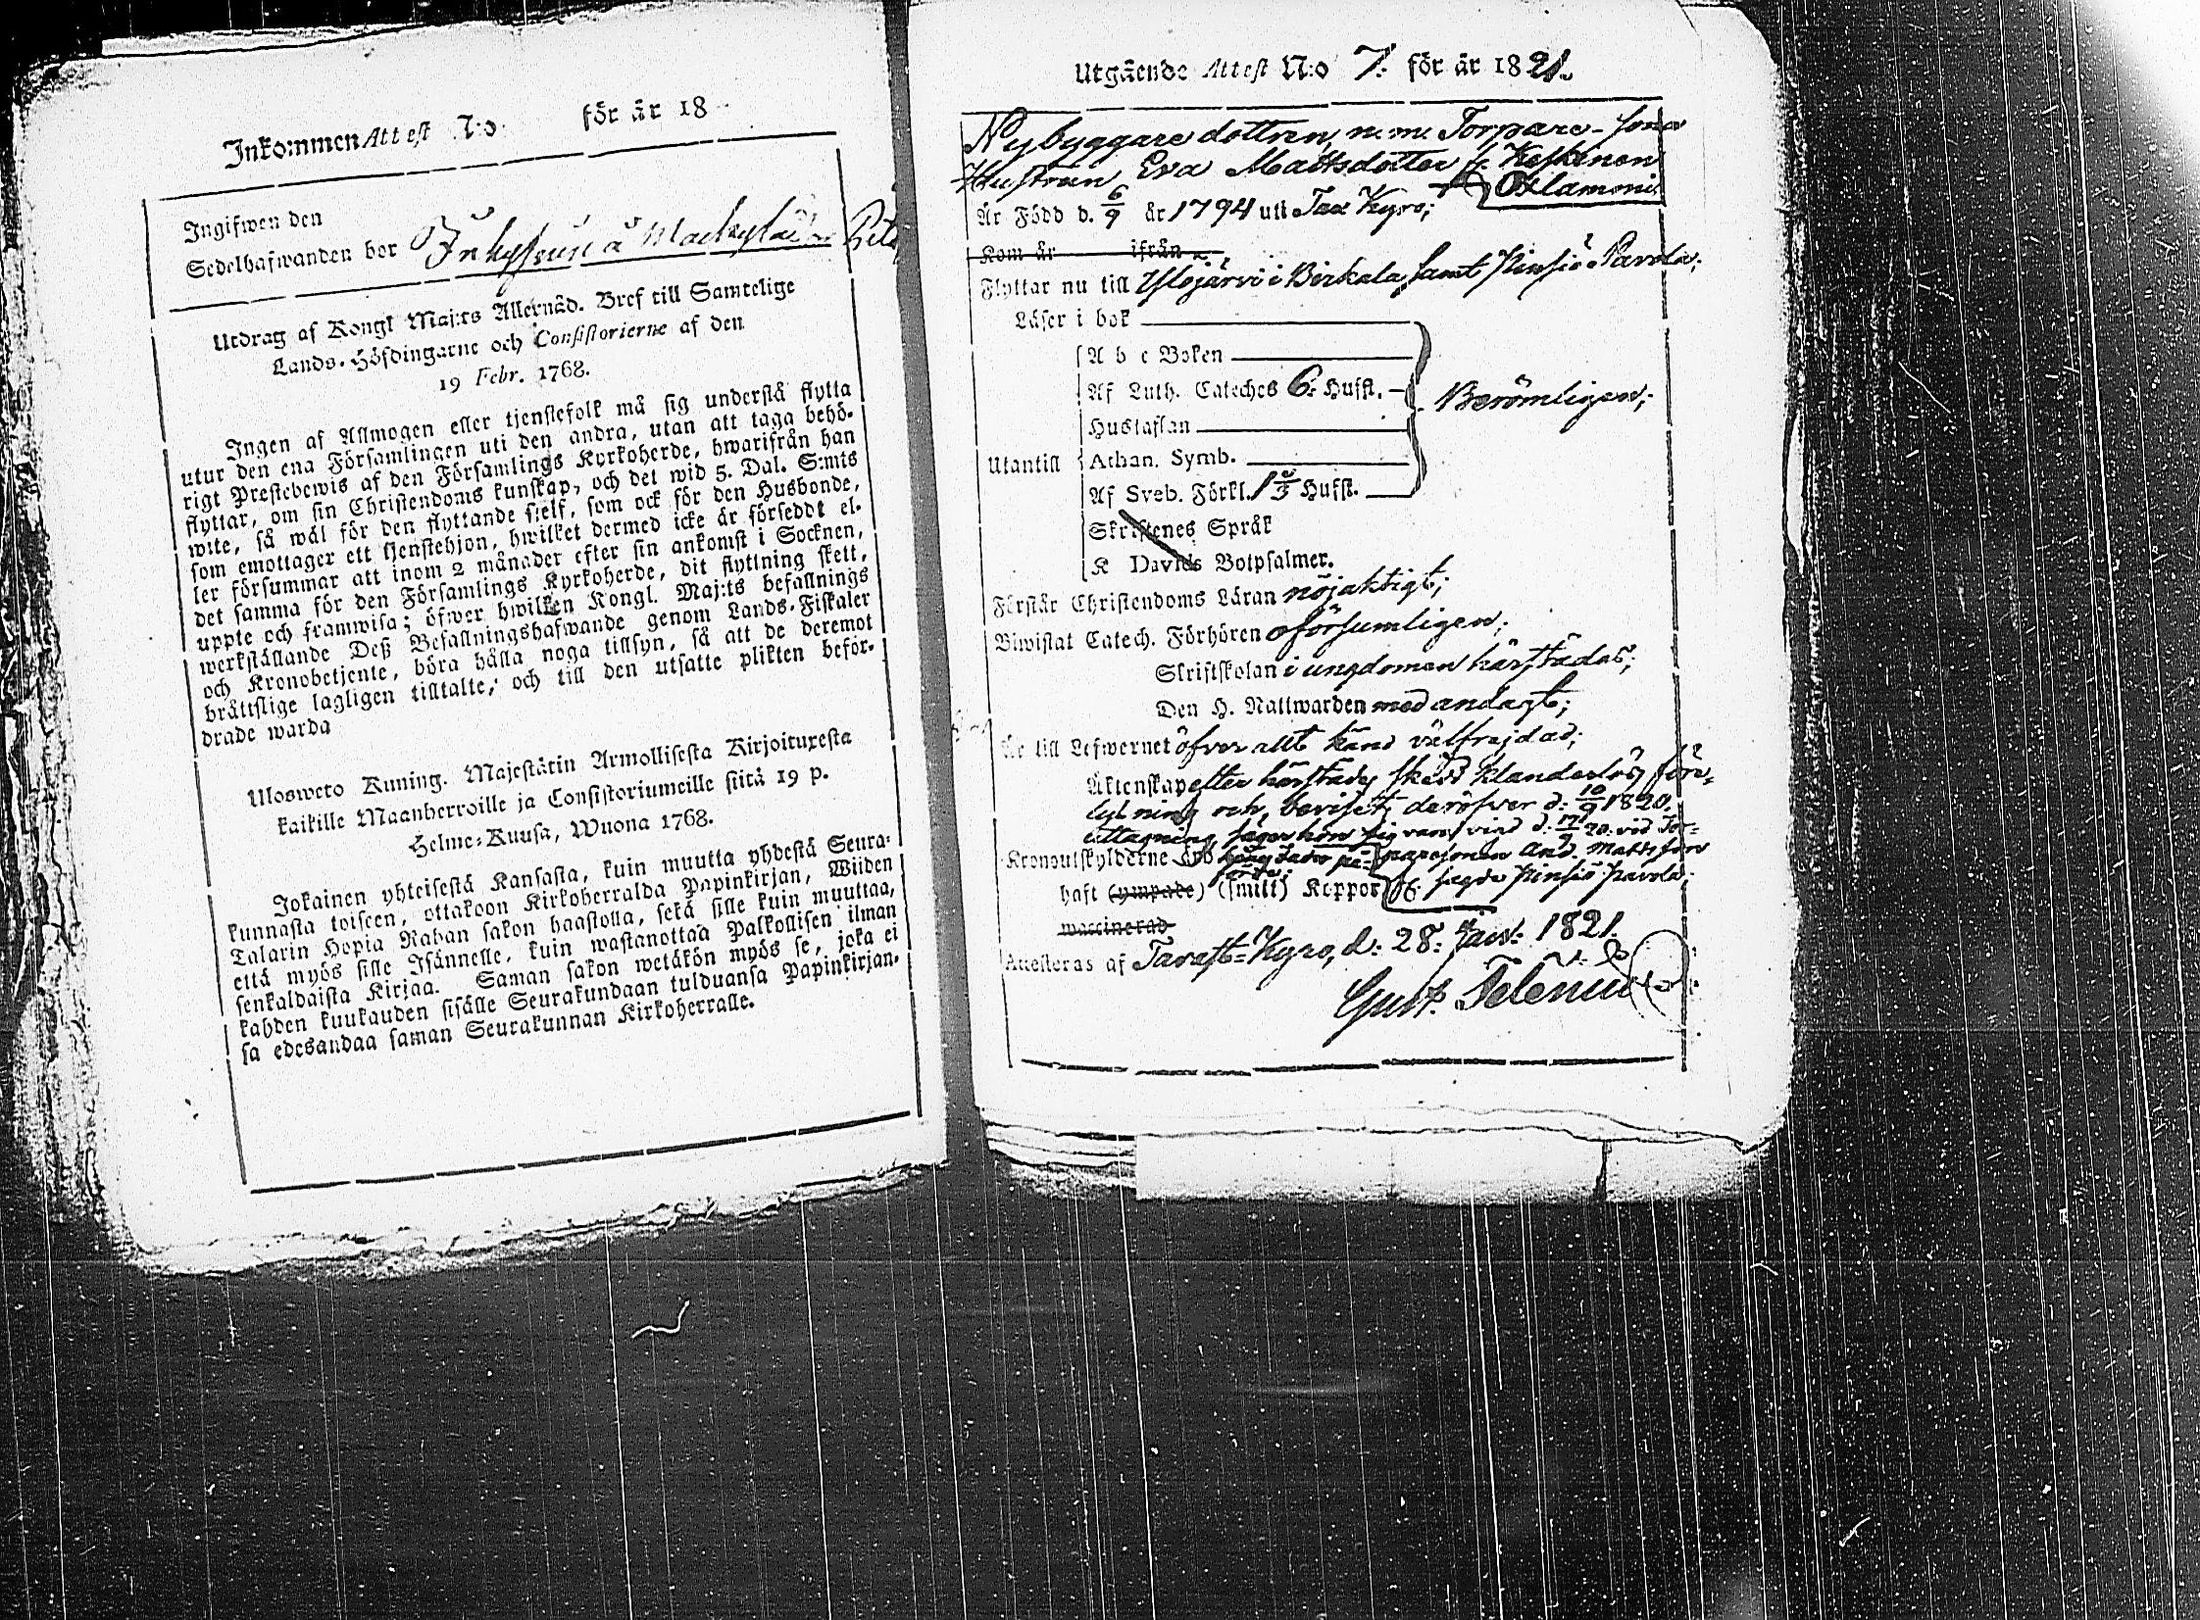 Inkommen Attest N:o för år 18
Ingifwen den
Sedelhafwanden bor
Utdrag af Kongl Maj:ts Allernåd. Bref till Samtelige
Lands-Höfdingarne och Consistorierne af den
19 Febr. 1768.
Ingen af Allmogen eller tjenstefolk må sig understå flytta
utur den ena Församlingen uti den andra, utan att taga behö-
rigt Prestebewis af den Församlings Kyrkoherde, hwarifrån han
flyttar, om sin Christendoms kunskap, och det wid 5. Dal. S:mts
wite, så wäl för den flyttande sjelf, som ock för den Husbonde,
som emottager ett tjenstehjon, hwilket dermed icke är förseddt el-
ler försummar att inom 2 månader efter sin ankomst i Socknen,
det samma för den Församlings Kyrkoherde, dit flyttning skett,
uppte och framwisa; öfwer hwilken Kongl. Maj:ts befallnings
werkställande Deß Befallningshafwande genom Lands-Fiskaler
och Kronobetjente, böra hålla noga tillsyn, så att de deremot
bråttslige lagligen tilltalte, och till den utsatte plikten befor-
drade warda
Ulosweto Kuning. Majestätin Armollisesta Kirjoituxesta
kaikille Maanherroille ja Consistoriumeille siitä 19 p.
Helme-Kuusa, Wuona 1768.
Jokainen yhteisestä Kansasta, kuin muutta yhdestä Seura-
kunnasta toiseen, ottakoon Kirkoherralda Papinkirjan, Wiiden
Talarin Hopia Rahan sakon haastolla, sekä sille kuin muuttaa,
että myös sille Isännelle, kuin wastanottaa Palkollisen ilman
senkaldaista Kirjaa. Saman sakon wetäkön myös se, joka ei
kahden kuukauden sisälle Seurakundaan tulduansa Papinkirjan-
sa edesandaa saman Seurakunnan Kirkoherralle.
Utgående Attest N:o 7. för år 1821.
Nybyggare dottren, n.m. Torpare-sona
Hustrun, Eva Mattsdotter fr. Keskinen
Oxlamoni
Är Född d. 6/9 år 1794 uti Tav Kyro;
Kom år ifrån
Flyttar nu till Ylöjärvi i Birkala samt Pinsiö Pavola;
Läser i bok
A b c Boken
Af Luth. Cateches 6: Hufst.
Berömligen;
Hustaflan
Utantill Athan. Symb.
Af Sveb. Förkl. 1 2/3 Hufst.
Skriftenes Språk
K Davids Botpsalmer.
Förstår Christendoms Läran nöjaktigt;
Biwistat Catech. Förhören oförsumligen;
Skriftskolan i ungdomen härstädes;
Den H. Nattwarden med andagt;
Är till Lefwernet öfver allt känd välfrejdad;
Äktenskap efter härstädes skedd klanderlös före-
lysning och beviset deröfver d: 10/9 1820.
uttagning, säger hon sig vara vigd d: 17/9 20. vid Tor-
Kronoutskylderne paresonen And. Mattsson
haft (ympade) (smitt) Koppor fr. sagde Pinsiö Pavola;
waccinerad
Attesteras af Tavast-Kyro, d: 28: 1821.
Gust. Telenius